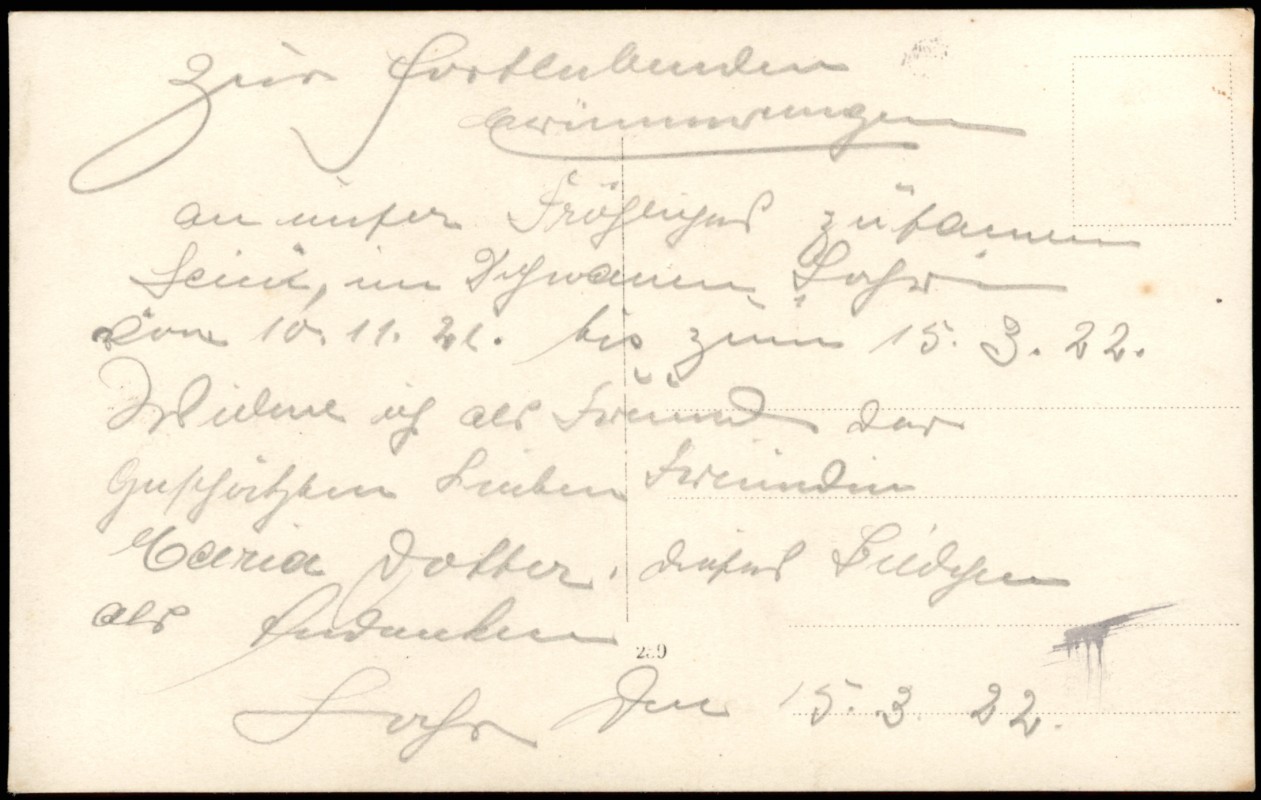 Zur fortlebenden
Erinnerungen
an unser Fröhliches zusamen
Sein, im Schwanen Lohr
von 10. 11. 21. bis zum 15. 3. 22.
Widme ich als Freund der
Geschätzten Lieben Freundin
Maria Dotter, dieses Bildchen
als Andenken
289
Lohr den 15. 3. 22.